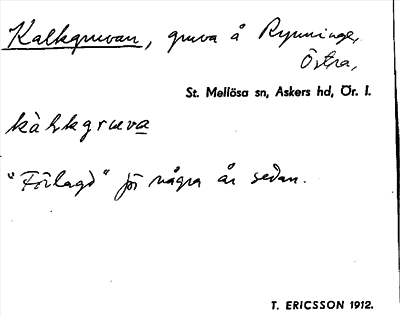 Kalkgruvan, gruva å Rynninge,
Östra,
St. Mellösa sn, Askers hd, Ör. l.
kàlkgruva
"Förlagd" för några år sedan.
T. ERICSSON 1912.